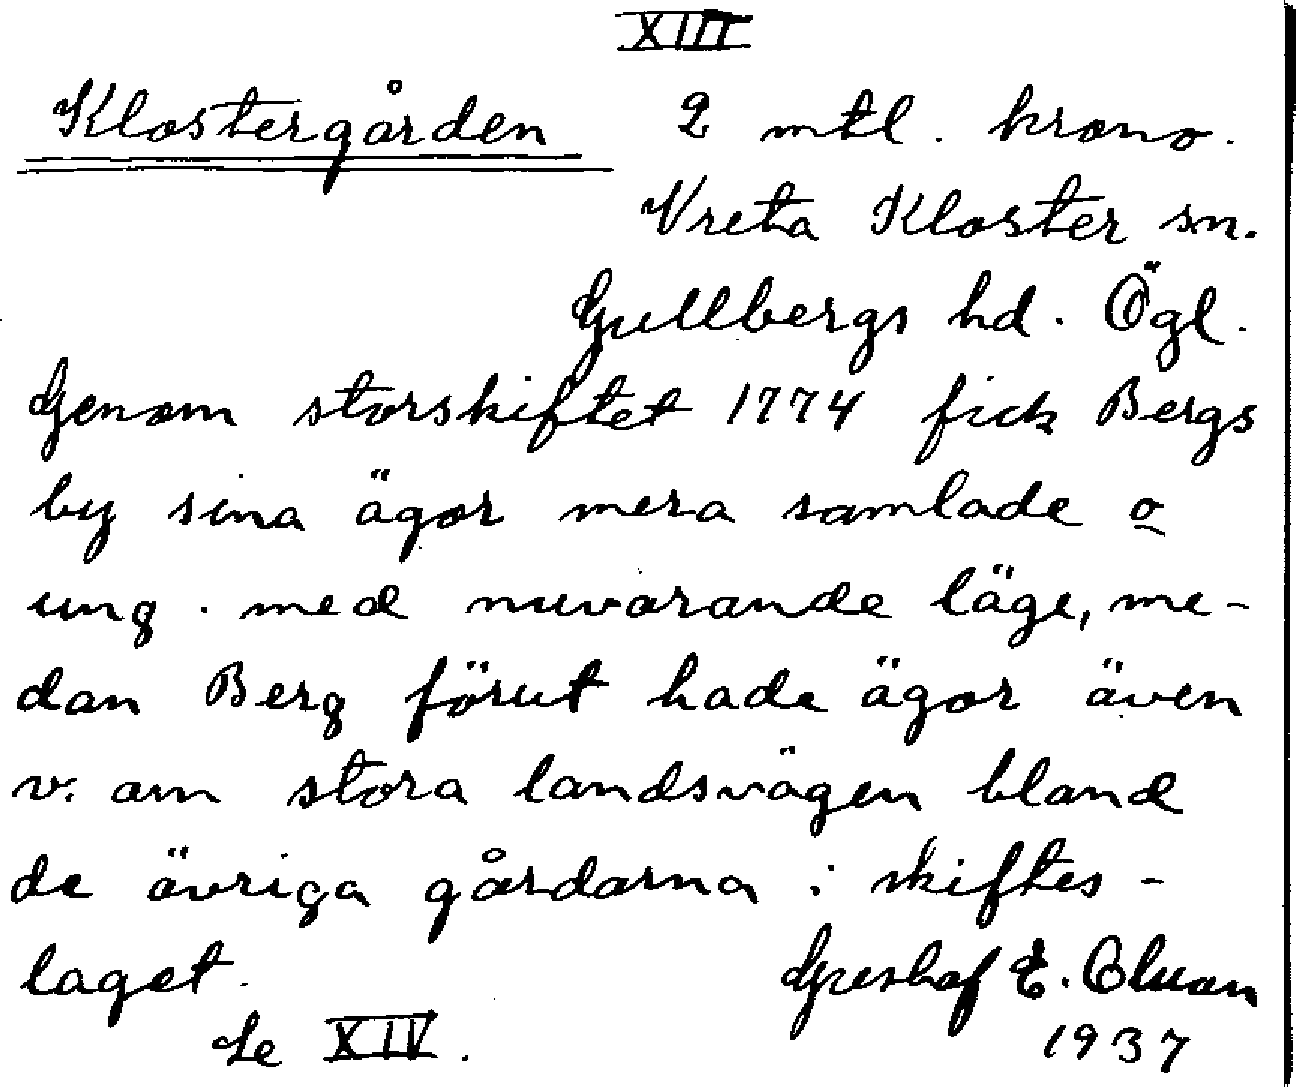 XIII
Klostergården 2 mtl. krono.
Vreta Kloster sn.
Gullbergs hd. Ögl.
Genom storskiftet 1774 fick Bergs
by sina ägor mera samlade o
ung. med nuvarande läge, me-
dan Berg förut hade ägor även
v. om stora landsvägen bland
de övriga gårdarna i skiftes-
laget.
E.
1937
Se XIV.